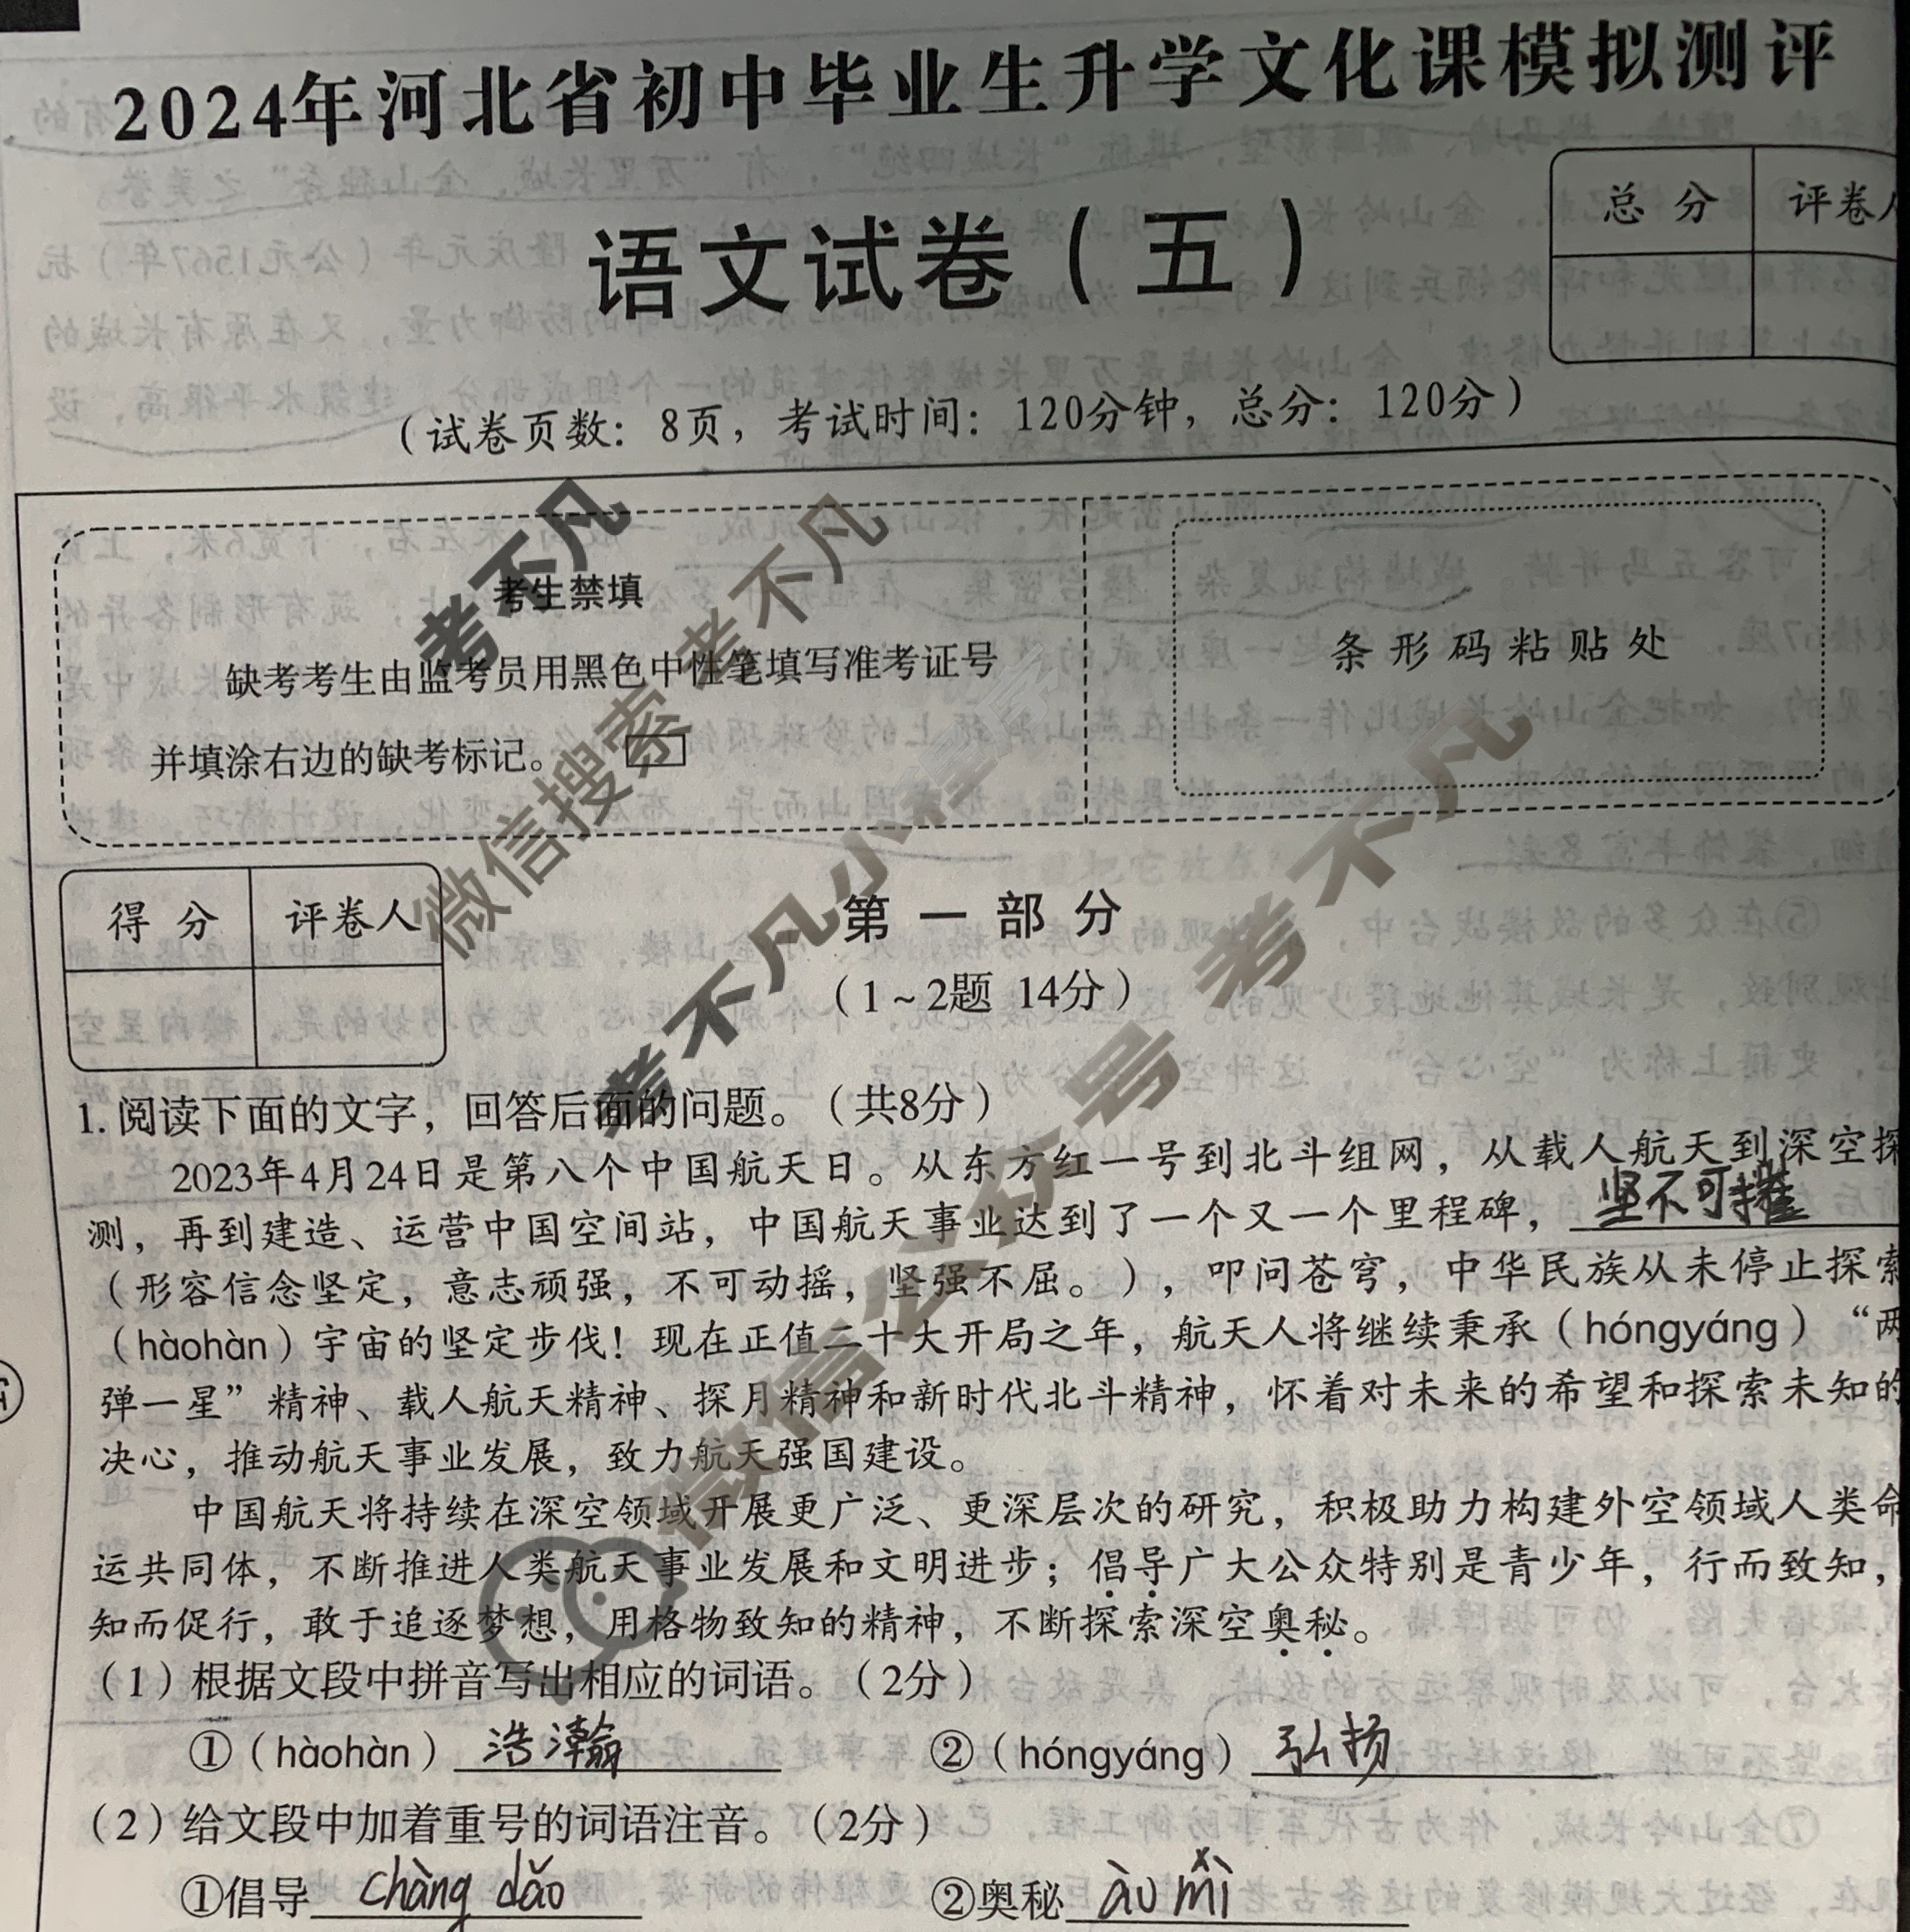 2024年河北省初中毕业生升学文化课模拟测评
语文试卷（五）
总分 评卷人
（试卷页数：8页，考试时间：120分钟，总分：120分）
考生禁填
缺考考生由监考员用黑色中性笔填写准考证号
并填涂右边的缺考标记。
条形码粘贴处
考不凡
微信搜索 考不凡
考不凡小程序
微信公众号 考不凡
得分 评卷人
第一部分
（1~2题 14分）
1. 阅读下面的文字，回答后面的问题。（共8分）
2023年4月24日是第八个中国航天日。从东方红一号到北斗组网，从载人航天到深空探
测，再到建造、运营中国空间站，中国航天事业达到了一个又一个里程碑，坚不可摧
（形容信念坚定，意志顽强，不可动摇，坚强不屈。），叩问苍穹，中华民族从未停止探索
（hàohàn）宇宙的坚定步伐！现在正值二十大开局之年，航天人将继续秉承（hóngyáng）“两
弹一星”精神、载人航天精神、探月精神和新时代北斗精神，怀着对未来的希望和探索未知的
决心，推动航天事业发展，致力航天强国建设。
中国航天将持续在深空领域开展更广泛、更深层次的研究，积极助力构建外空领域人类命
运共同体，不断推进人类航天事业发展和文明进步；倡导广大公众特别是青少年，行而致知，
知而促行，敢于追逐梦想，用格物致知的精神，不断探索深空奥秘。
（1）根据文段中拼音写出相应的词语。（2分）
①（hàohàn）浩瀚 ②（hóngyáng）弘扬
（2）给文段中加着重号的词语注音。（2分）
①倡导 chàng dǎo ②奥秘 ào mì